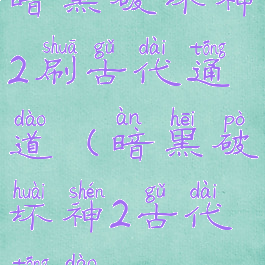 暗黑破坏神
shuā gǔ dài tōng
2刷古代通
dào àn hēi pò
道(暗黑破
huài shén gǔ dài
坏神2古代
tōng dào